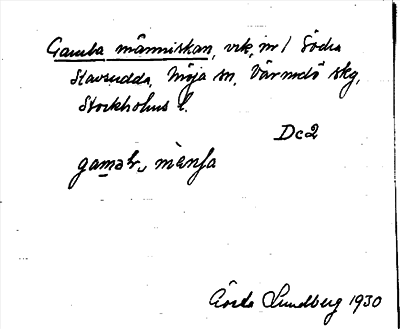 Gamla människan, vik, nr 1 Södra
Stavsudda, Möja sn, Värmdö skg,
Stockholms l.
Dc2
Gösta Lundberg 1930